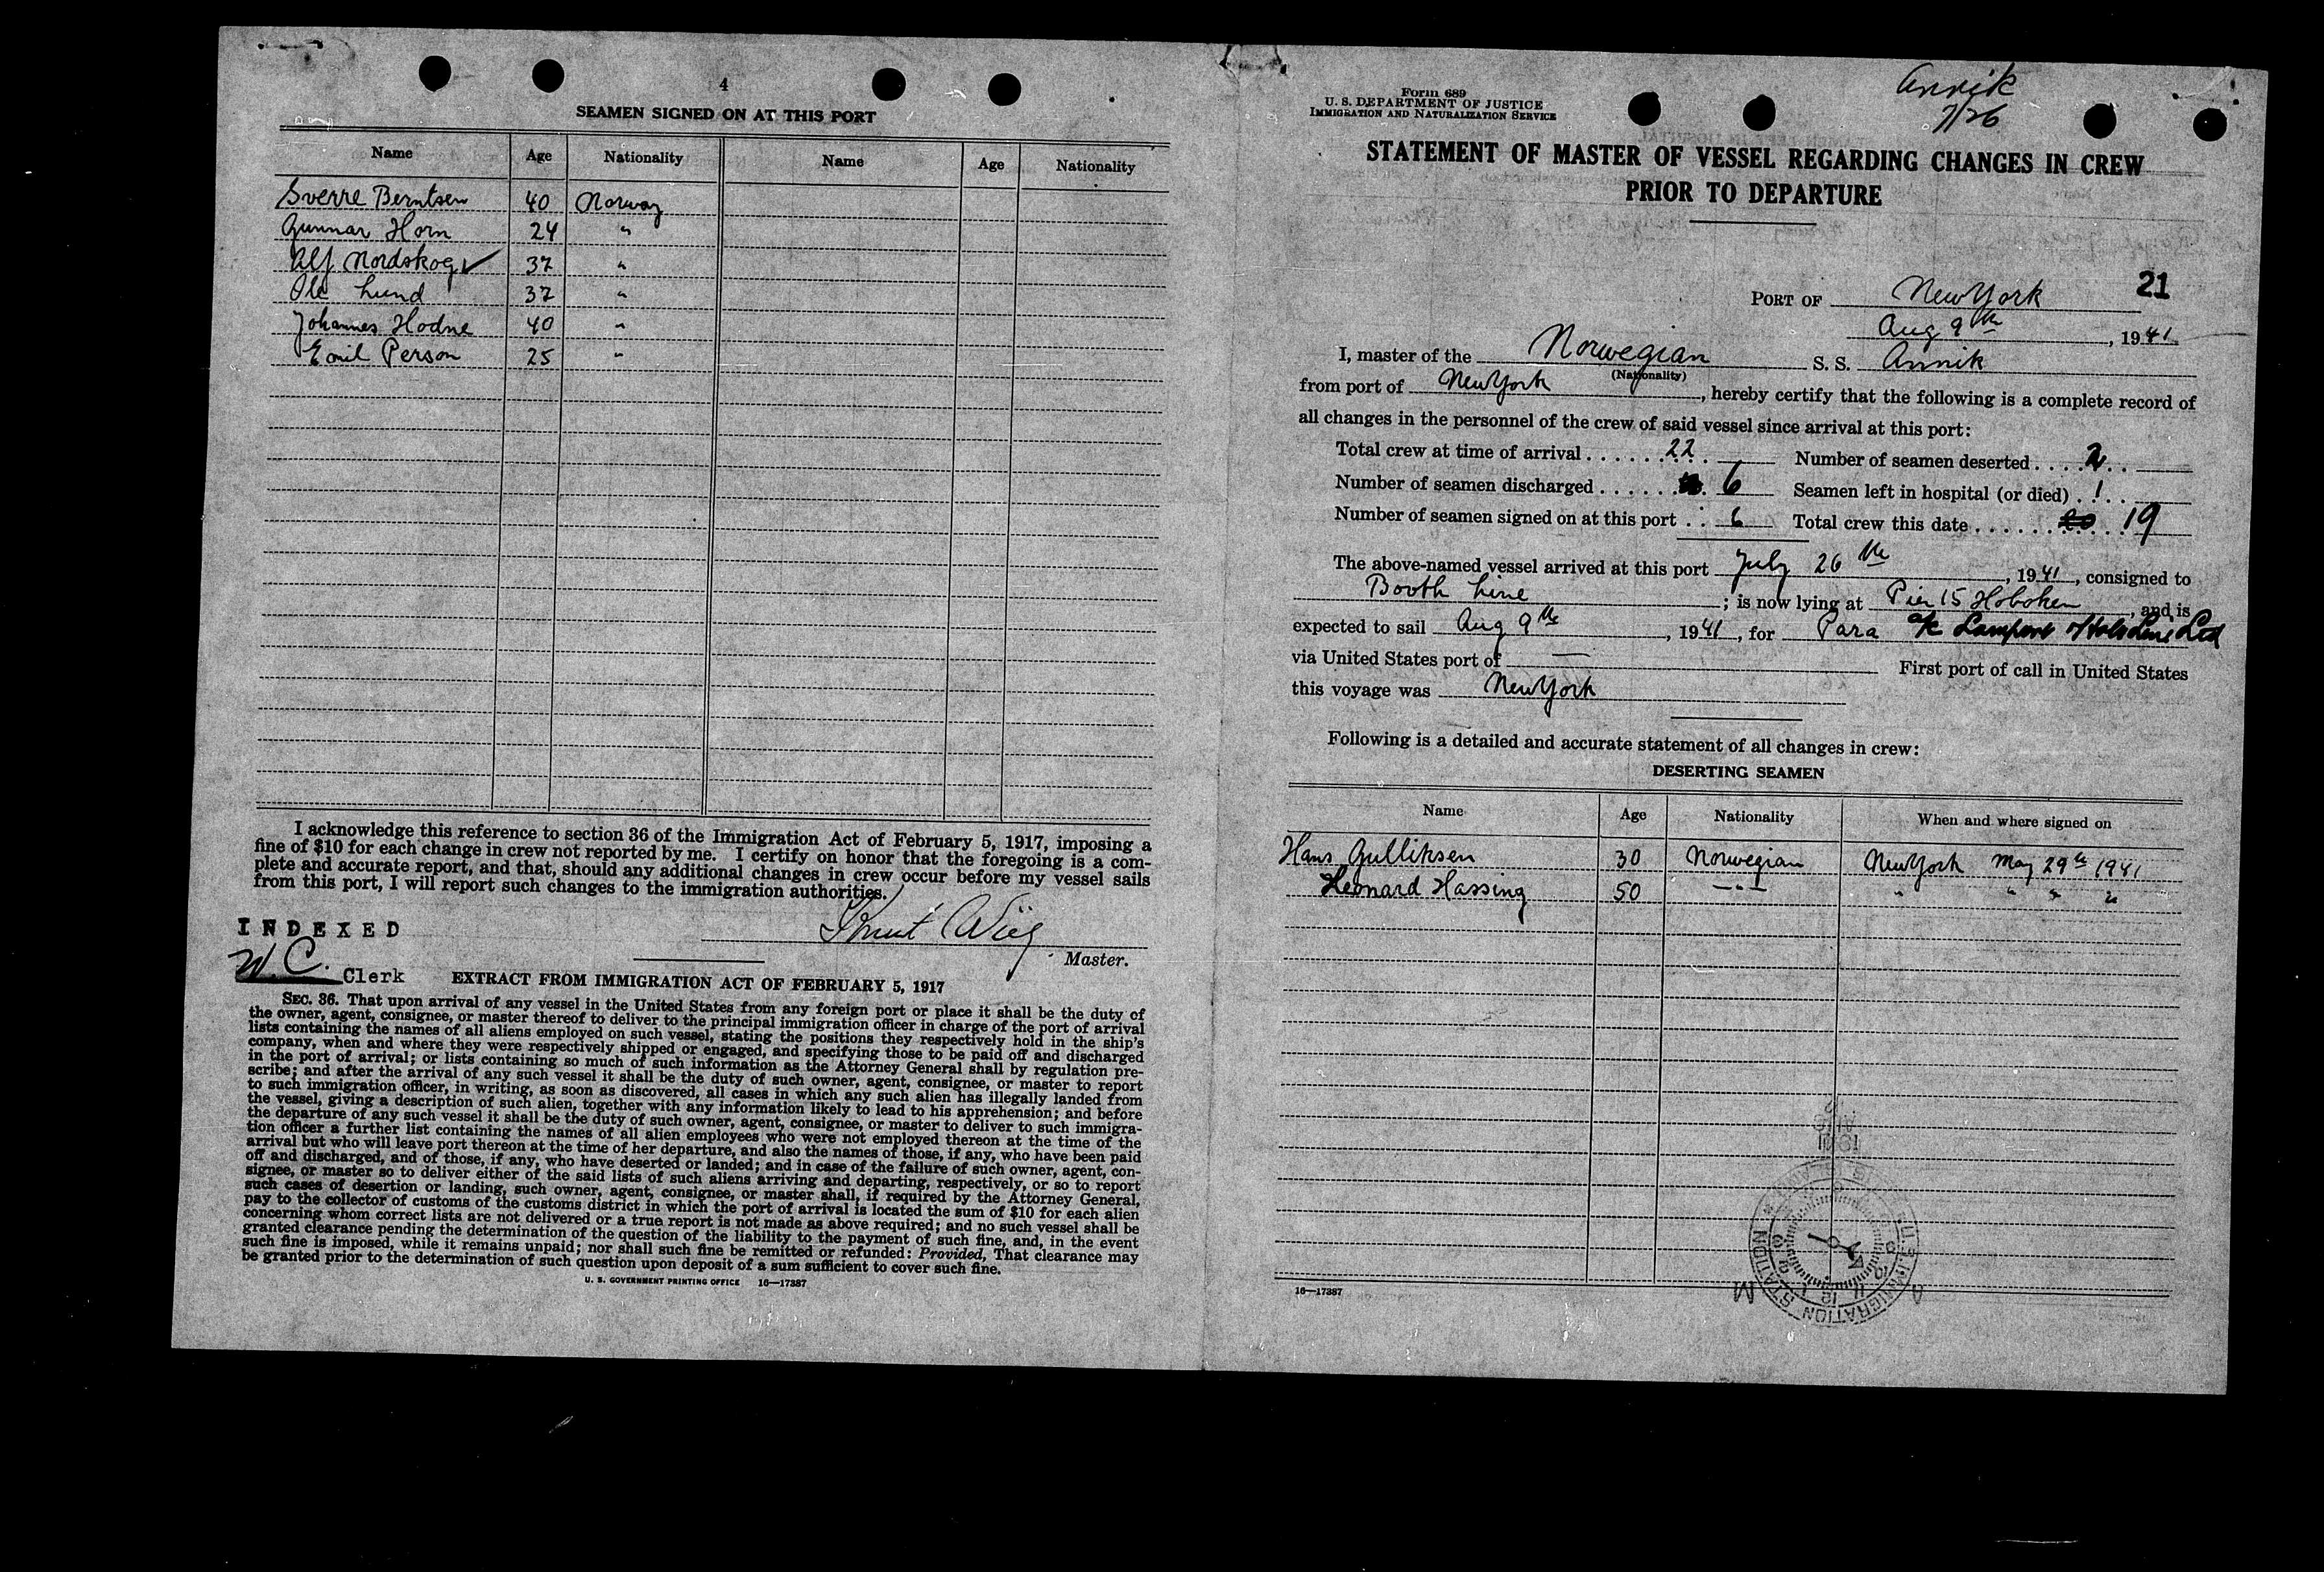 4
SEAMEN SIGNED ON AT THIS PORT
Name Age Nationality Name Age Nationality
Sverre Berntsen 40 Norway
Gunnar Horn 24 "
Alf Nordskog ✓ 37 "
Ole Lund 37 "
Johannes Hodne 40 "
Emil Person 25 "
I acknowledge this reference to section 36 of the Immigration Act of February 5, 1917, imposing a
fine of $10 for each change in crew not reported by me. I certify on honor that the foregoing is a com-
plete and accurate report, and that, should any additional changes in crew occur before my vessel sails
from this port, I will report such changes to the immigration authorities.
INDEXED
Master.
W. C. Clerk
EXTRACT FROM IMMIGRATION ACT OF FEBRUARY 5, 1917
SEC. 36. That upon arrival of any vessel in the United States from any foreign port or place it shall be the duty of
the owner, agent, consignee, or master thereof to deliver to the principal immigration officer in charge of the port of arrival
lists containing the names of all aliens employed on such vessel, stating the positions they respectively hold in the ship's
company, when and where they were respectively shipped or engaged, and specifying those to be paid off and discharged
in the port of arrival; or lists containing so much of such information as the Attorney General shall by regulation pre-
scribe; and after the arrival of any such vessel it shall be the duty of such owner, agent, consignee, or master to report
to such immigration officer, in writing, as soon as discovered, all cases in which any such alien has illegally landed from
the vessel, giving a description of such alien, together with any information likely to lead to his apprehension; and before
the departure of any such vessel it shall be the duty of such owner, agent, consignee, or master to deliver to such immigra-
tion officer a further list containing the names of all alien employees who were not employed thereon at the time of the
arrival but who will leave port thereon at the time of her departure, and also the names of those, if any, who have been paid
off and discharged, and of those, if any, who have deserted or landed; and in case of the failure of such owner, agent, con-
signee, or master so to deliver either of the said lists of such aliens arriving and departing, respectively, or so to report
such cases of desertion or landing, such owner, agent, consignee, or master shall, if required by the Attorney General,
pay to the collector of customs of the customs district in which the port of arrival is located the sum of $10 for each alien
concerning whom correct lists are not delivered or a true report is not made as above required; and no such vessel shall be
granted clearance pending the determination of the question of the liability to the payment of such fine, and, in the event
such fine is imposed, while it remains unpaid; nor shall such fine be remitted or refunded: Provided, That clearance may
be granted prior to the determination of such question upon deposit of a sum sufficient to cover such fine.
U. S. GOVERNMENT PRINTING OFFICE 16—17387
Annik
7/26
Form 689
U. S. DEPARTMENT OF JUSTICE
IMMIGRATION AND NATURALIZATION SERVICE
STATEMENT OF MASTER OF VESSEL REGARDING CHANGES IN CREW
PRIOR TO DEPARTURE
21
PORT OF New York
Aug 9th, 1941
I, master of the Norwegian S. S. Annik
(Nationality)
from port of New York, hereby certify that the following is a complete record of
all changes in the personnel of the crew of said vessel since arrival at this port:
Total crew at time of arrival . . . . . . 22 Number of seamen deserted . . . . 2
Number of seamen discharged . . . . . . 6 Seamen left in hospital (or died) . 1
Number of seamen signed on at this port . . 6 Total crew this date . . . . . . 20 19
The above-named vessel arrived at this port July 26th, 1941, consigned to
Booth Line; is now lying at Pier 15 Hoboken, and is
expected to sail Aug 9th, 1941, for Para a/c Lamport & Holt Line Ltd
via United States port of — First port of call in United States
this voyage was New York
Following is a detailed and accurate statement of all changes in crew:
DESERTING SEAMEN
Name Age Nationality When and where signed on
Hans Gulliksen 30 Norwegian New York May 29th 1941
Leonard Hassing 50 — " — " " " "
U.S. IMMIGRATION STATION
16—17387